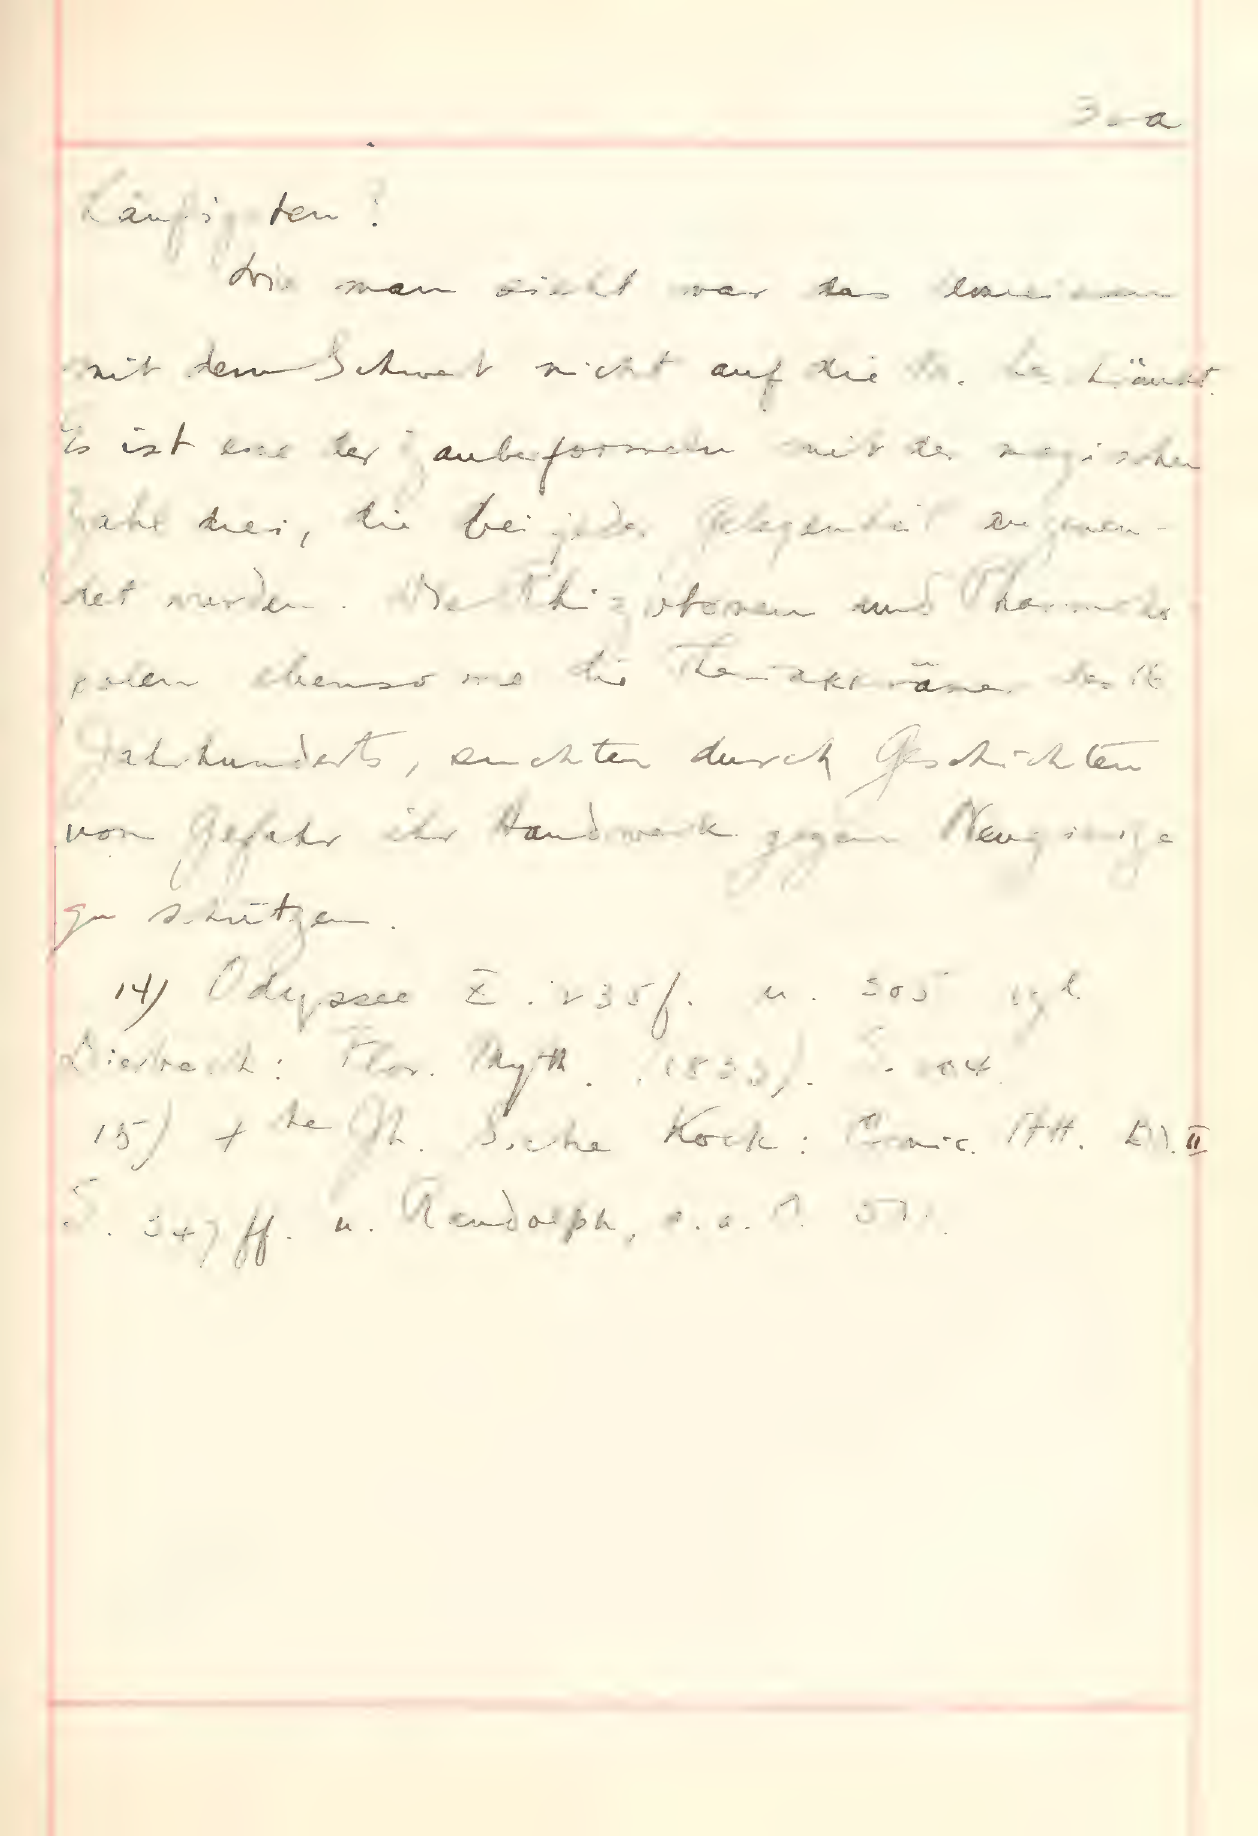 Läufigsten?
Wie man sieht war das
mit dem Schwert nicht auf die beschränkt.
Es ist eine der Zauberformeln mit der magischen
Zahl drei, die bei jeder Gelegenheit angewen-
det werden. Die Rhizotomen und Pharmako
polen ebenso wie die Theriakkrämer des 16
Jahrhunderts, suchten durch Geschichten
von Gefahr ihr Handwerk gegen Neugierige
zu schützen.
14) Odyssee X. 235f. u. 305 vgl.
Dierbach: Flor. Myth. (1833). S. 204
15) 4te Jh. Siehe Kock: Comic. Att. Bd. II
S. 347 ff. u. Randolph, a. a. O.